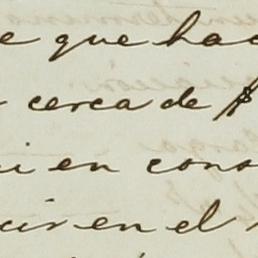 e que hac
cerca de $
i en cons
cir en el